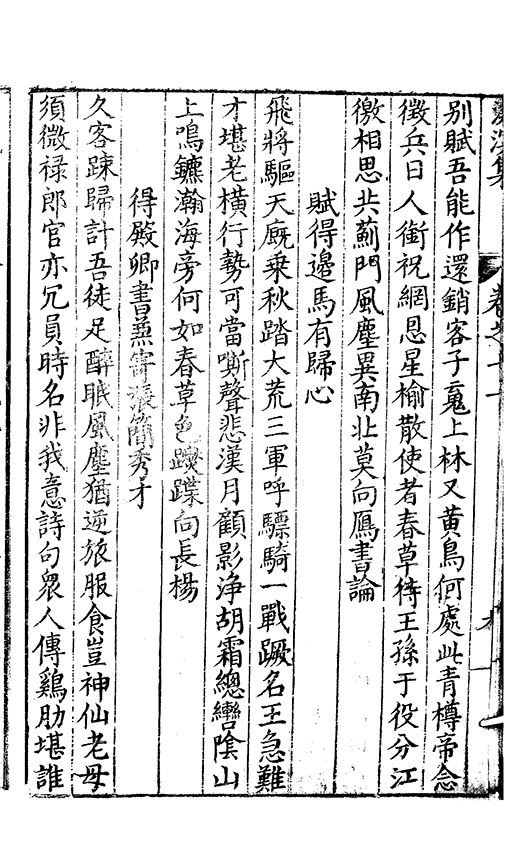 滄溟集 卷之十一
別賦吾能作還銷客子䰟上林又黃鳥何處此青樽帝念
徵兵日人銜祝網恩星榆散使者春草待王孫于役分江
徼相思共薊門風塵異南北莫向鴈書論
賦得邊馬有歸心
飛將驅天廐乗秋踏大荒三軍呼驃騎一戰蹶名王急難
才堪老橫行勢可當嘶聲悲漢月顧影浄胡霜總轡陰山
上鳴鑣瀚海旁何如春草色蹀躞向長楊
得殿卿書兼寄張簡秀才
久客疎歸計吾徒足醉眠風塵猶逆旅服食豈神仙老母
須微禄郎官亦冗員時名非我意詩句衆人傳鷄肋堪誰